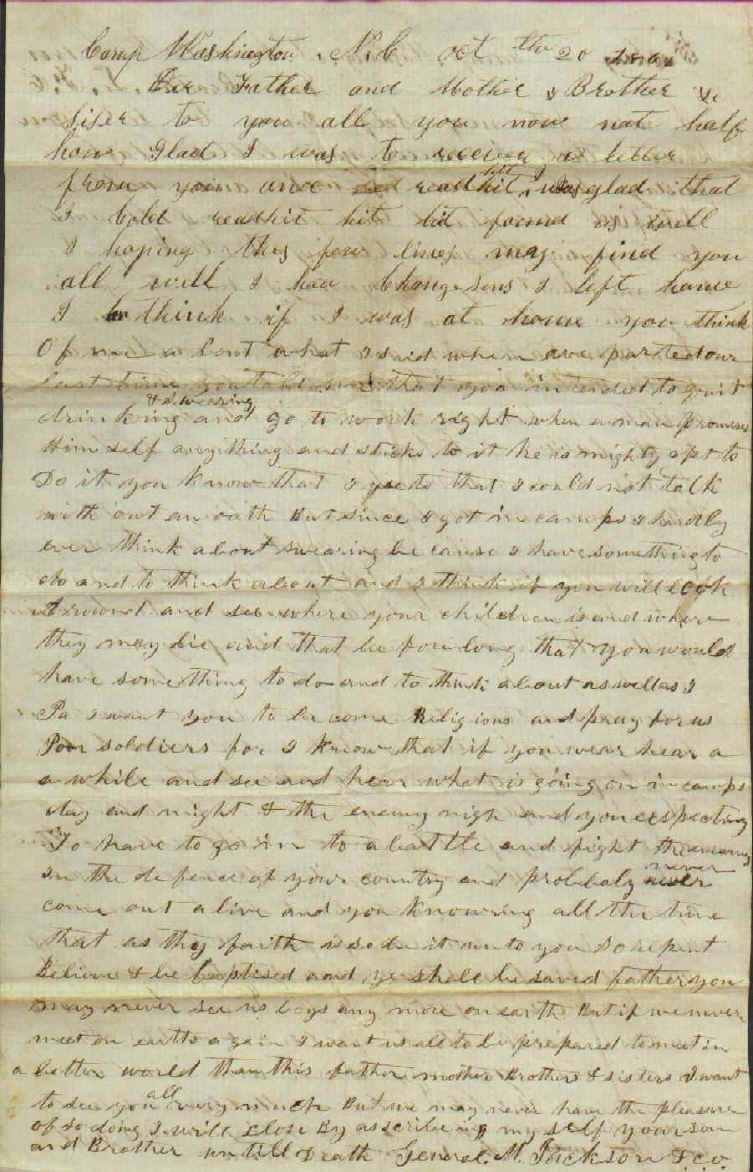 Camp Washington N.C Oct th 20
Der Father and Mother & Brother &
siser to you all you now not half
how Glad I was to receive a letter
from you and read hit I was glad that
I Cold readhit hit hit found us well
I hoping thes few lines may find you
all well I hav Change sens I left home
I think if I was at home you think
Of me a bout what I said when we parted our
last time you told me that you intended to quit
drinking & swearing and go to work right when a man promises
Him self anything and sticks to it he is mighty apt to
Do it you know that I yuste that I could not talk
with out an oath But since I got in camps I hardly
ever think about swearing be cause I have something to
do and to think about and I think if you will look
around and see where your children is and where
they may die and that be fore long that you would
have some thing to do and to think about as well as I
Pa I want you to be come Religious and pray for us
Poor soldiers for I know that if you wear hear a
a while and see and hear what is going on in camps
day and night & the enemy nigh and you exspecting
To have to go in to a battle and fight the enemy
in the defence of your country and probibaly never
come out a live and you knowing all the time
that as thy faith is so be it un to you so repent
Believe & be baptised and ye shall be saved father you
may never see us boys any more on earth But if we never
meet on earth a gain I want us all to be prepared to meet in
a better world than this father mother Brothers & sisters I want
to see you all very much But we may never have the pleasure
of so doing I will close By ascribeing my self your son
and Brother un till Death General. M. Jackson & co.